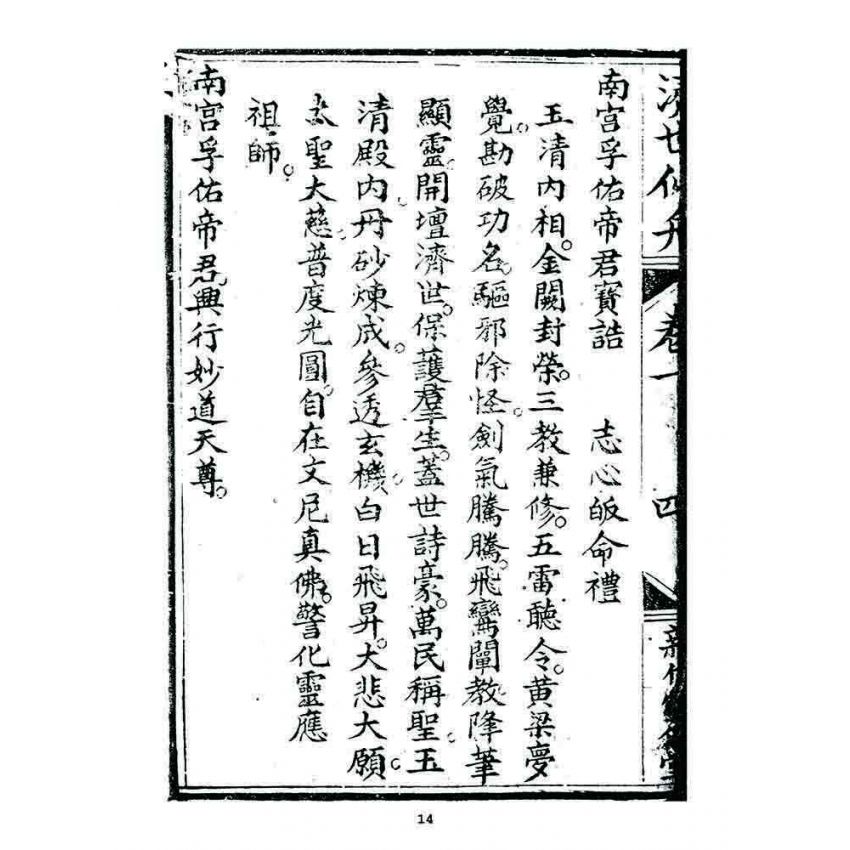 南宮孚佑帝君寶誥　志心皈命禮
玉清內相。金闕封榮。三教兼修。五雷聽令。黃梁夢
覺。勘破功名。驅邪除怪。劍氣騰騰。飛鸞闡教。降筆
顯靈。開壇濟世。保護羣生。蓋世詩豪。萬民稱聖。玉
清殿內。丹砂煉成。參透玄機。白日飛昇。大悲大願。
太聖大慈。普度光圓。自在文尼真佛。警化靈應
祖師。
南宮孚佑帝君。興行妙道天尊。
濟世
卷一
四
14